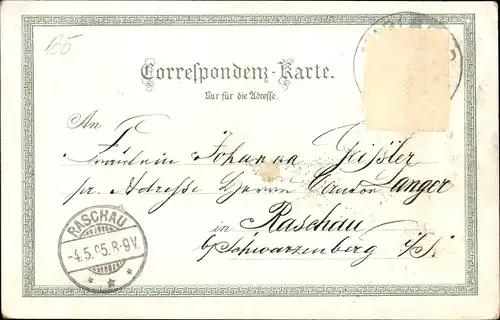 65
Correspondenz-Karte.
Nur für die Adresse.
An
Fräulein Johanna Geißler
pr. Adresse Herrn Langer
in Raschau
b/Schwarzenberg i/S.
RASCHAU
-4.5.05.8-9V.